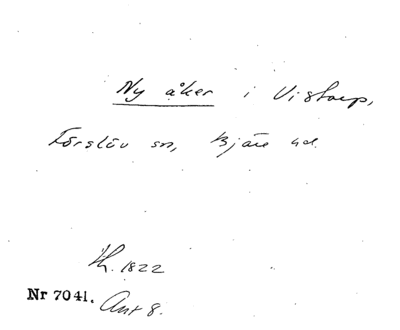 Ny åker i Vistorp,
Förslöv sn, Bjäre hd.
Th. 1822
Nr 7041. Ant 8.